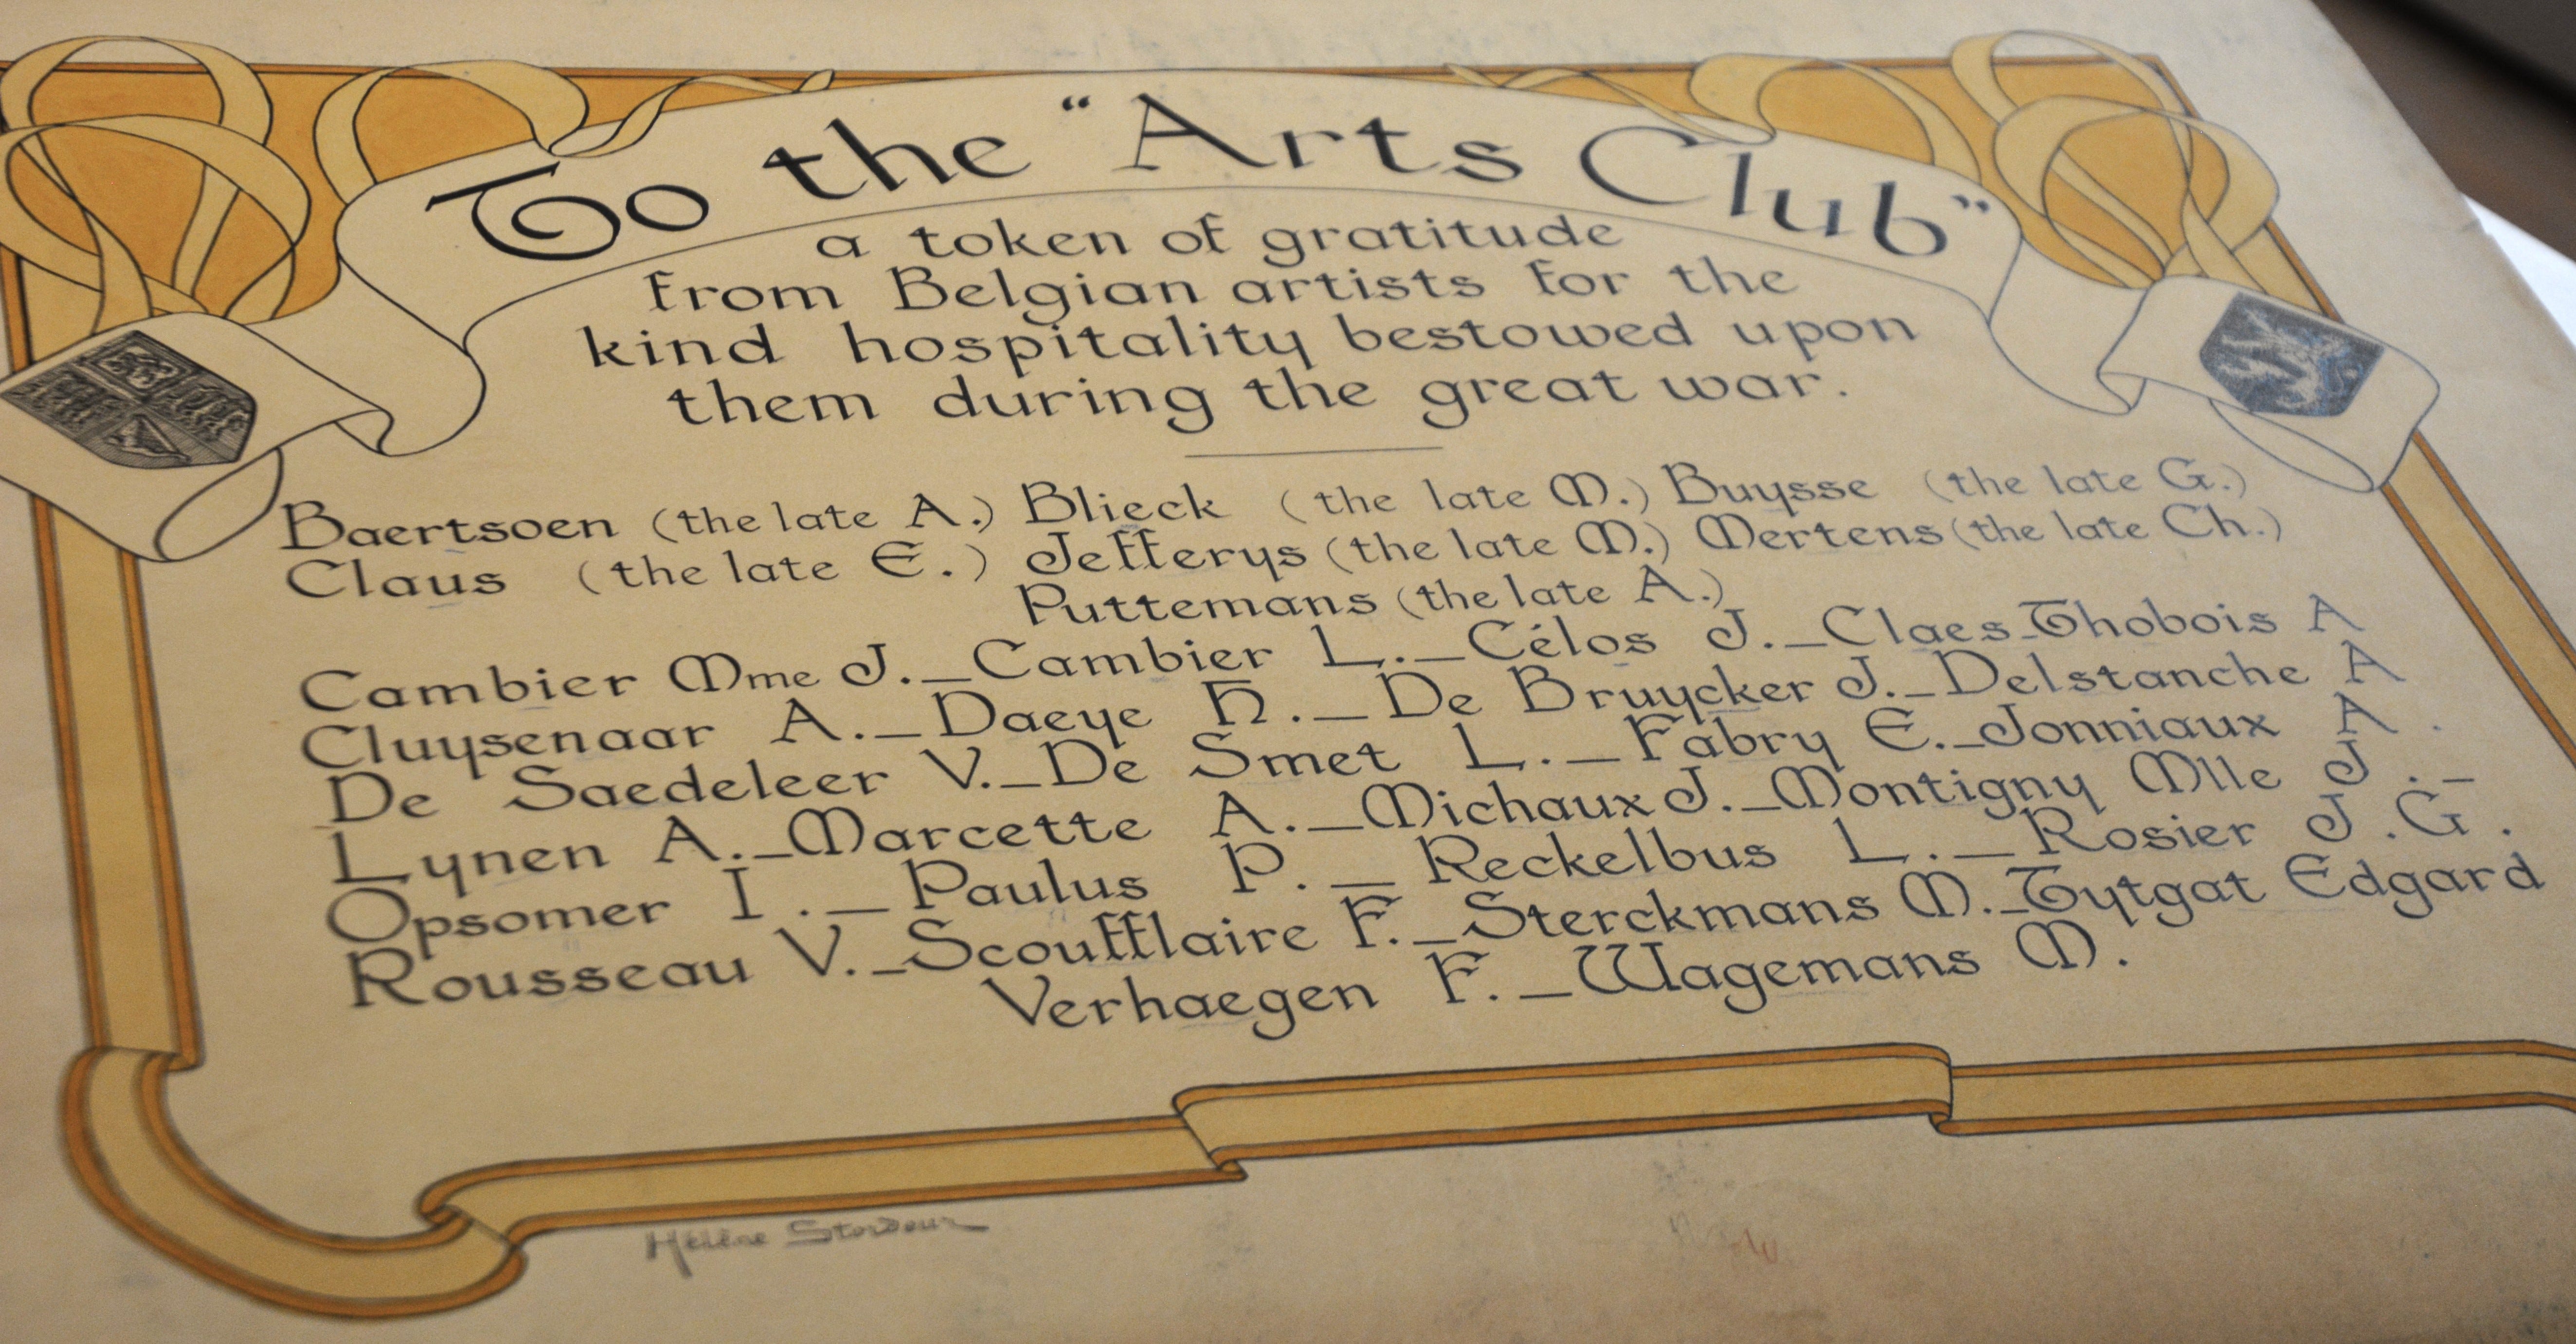 To the "Arts Club"
a token of gratitude
from Belgian artists for the
kind hospitality bestowed upon
them during the great war.
Baertsoen (the late A.) Blieck (the late M.) Buysse (the late G.)
Claus (the late E.) Jefferys (the late M.) Mertens (the late Ch.)
Puttemans (the late A.)
Cambier Mme J._Cambier L._Célos J._Claes-Thobois A
Cluysenaar A._Daeye H._De Bruycker J._Delstanche A
De Saedeleer V._De Smet L._Fabry E._Jonniaux A.
Lynen A._Marcette A._Michaux J._Montigny Mlle J._
Opsomer I._Paulus P._Reckelbus L._Rosier J.G.
Rousseau V._Scoufflaire F._Sterckmans M._Tytgat Edgard
Verhaegen F._Wagemans M.
Hélène